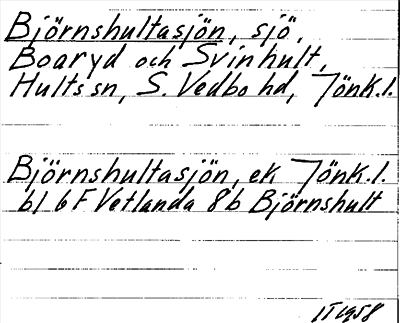 Björnshultasjön, sjö,
Boaryd och Svinhult,
Hults sn, S. Vedbo hd, Jönk.l.
Björnshultasjön, ek Jönk.l.
bl 6 F Vetlanda 8b Björnshult
IT 1958